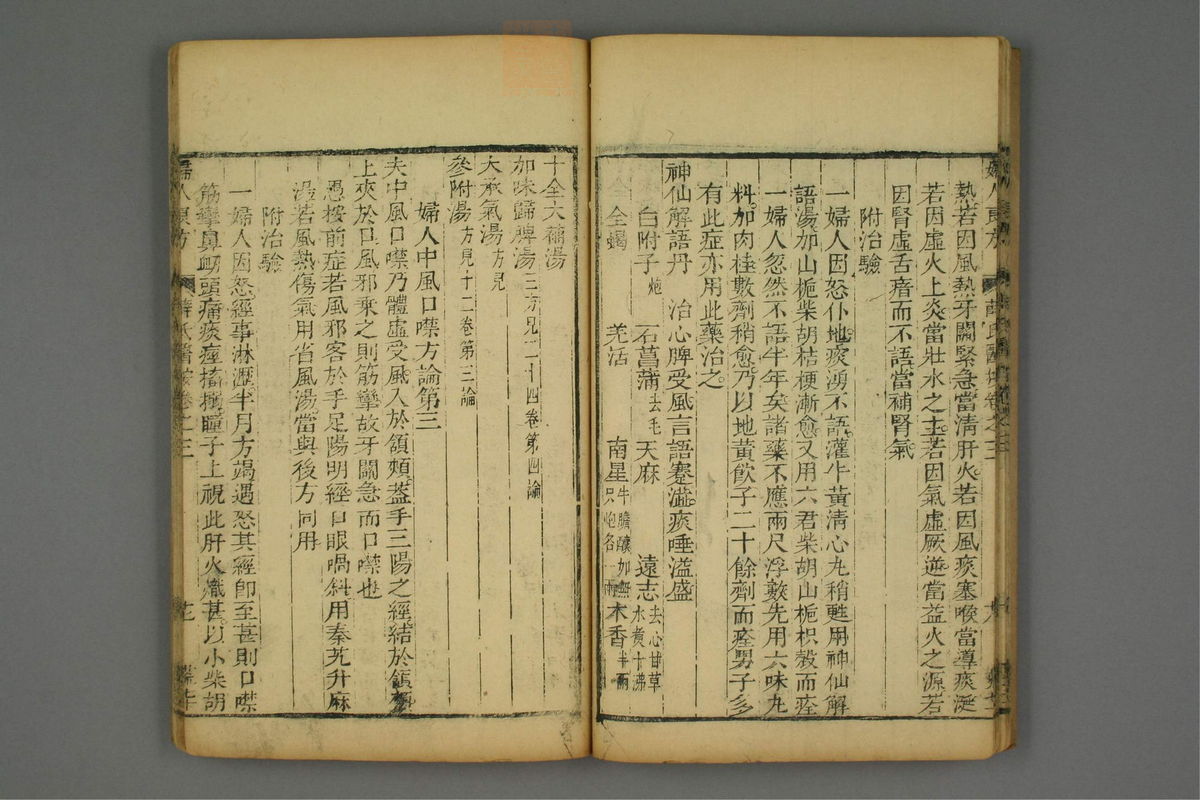 熱若因風熱牙關緊急當清肝火若因風痰塞喉當導痰涎
若因虛火上炎當壯水之主若因氣虛厥逆當益火之源若
因腎虛舌瘖而不語當補腎氣
附治驗
一婦人因怒仆地痰湧不語灌牛黃清心丸稍甦用神仙解
語湯加山梔柴胡桔梗漸愈又用六君柴胡山梔枳殼而痊
一婦人忽然不語半年矣諸藥不應兩尺浮數先用六味丸
料加肉桂數劑稍愈乃以地黃飲子二十餘劑而痊男子多
有此症亦用此藥治之
神仙解語丹 治心脾受風言語蹇澁痰唾溢盛
白附子炮 石菖蒲去毛 天麻 遠志去心甘草水煮十沸
全蝎 羌活 南星牛膽釀如無只炮各一兩 木香半兩
十全大補湯
加味歸脾湯二方見二十四卷第四論
大承氣湯方見
參附湯方見十二卷第三論
婦人中風口噤方論第三
夫中風口噤乃體虛受風入於頷頰葢手三陽之經結於頷頰
上夾於口風邪乘之則筋攣故牙關急而口噤也
愚按前症若風邪客於手足陽明經口眼喎斜用秦艽升麻
湯若風熱傷氣用省風湯當與後方同用
附治驗
一婦人因怒經事淋瀝半月方竭遇怒其經卽至甚則口噤
筋攣鼻衂頭痛痰痙搐搦瞳子上視此肝火熾甚以小柴胡
婦人良方
薛氏醫按卷之三